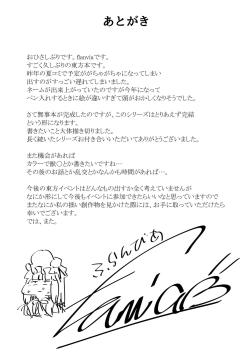 あとがき
おひさしぶりです。flanviaです。
すごく久しぶりの東方本です。
昨年の夏コミで予定ががちゃがちゃになってしまい
出すのがすっごい遅れてしまいました。
ネームが出来上がっていたのですが今年になって
ペン入れするときに絵が違いすぎて頭がおかしくなりそうでした。
さて無事本が完成したのですが、このシリーズはとりあえず完結
という形になります。
書きたいこと大体描き切りました。
長く続いたシリーズお付き合いいただいてありがとうございました。
また機会があれば
カラーで獣〇とか書きたいですね…
その後のお話とか乱交とかなんかも時間があれば…。
今後の東方イベントはどんなもの出すか全く考えていませんが
なにか形にして今後もイベントに参加できたらいいなと思っていますので
またなにか私の拙い創作物を見かけた際には、お手に取っていただけたら
幸いでございます。
では、また。
ふらんびあ